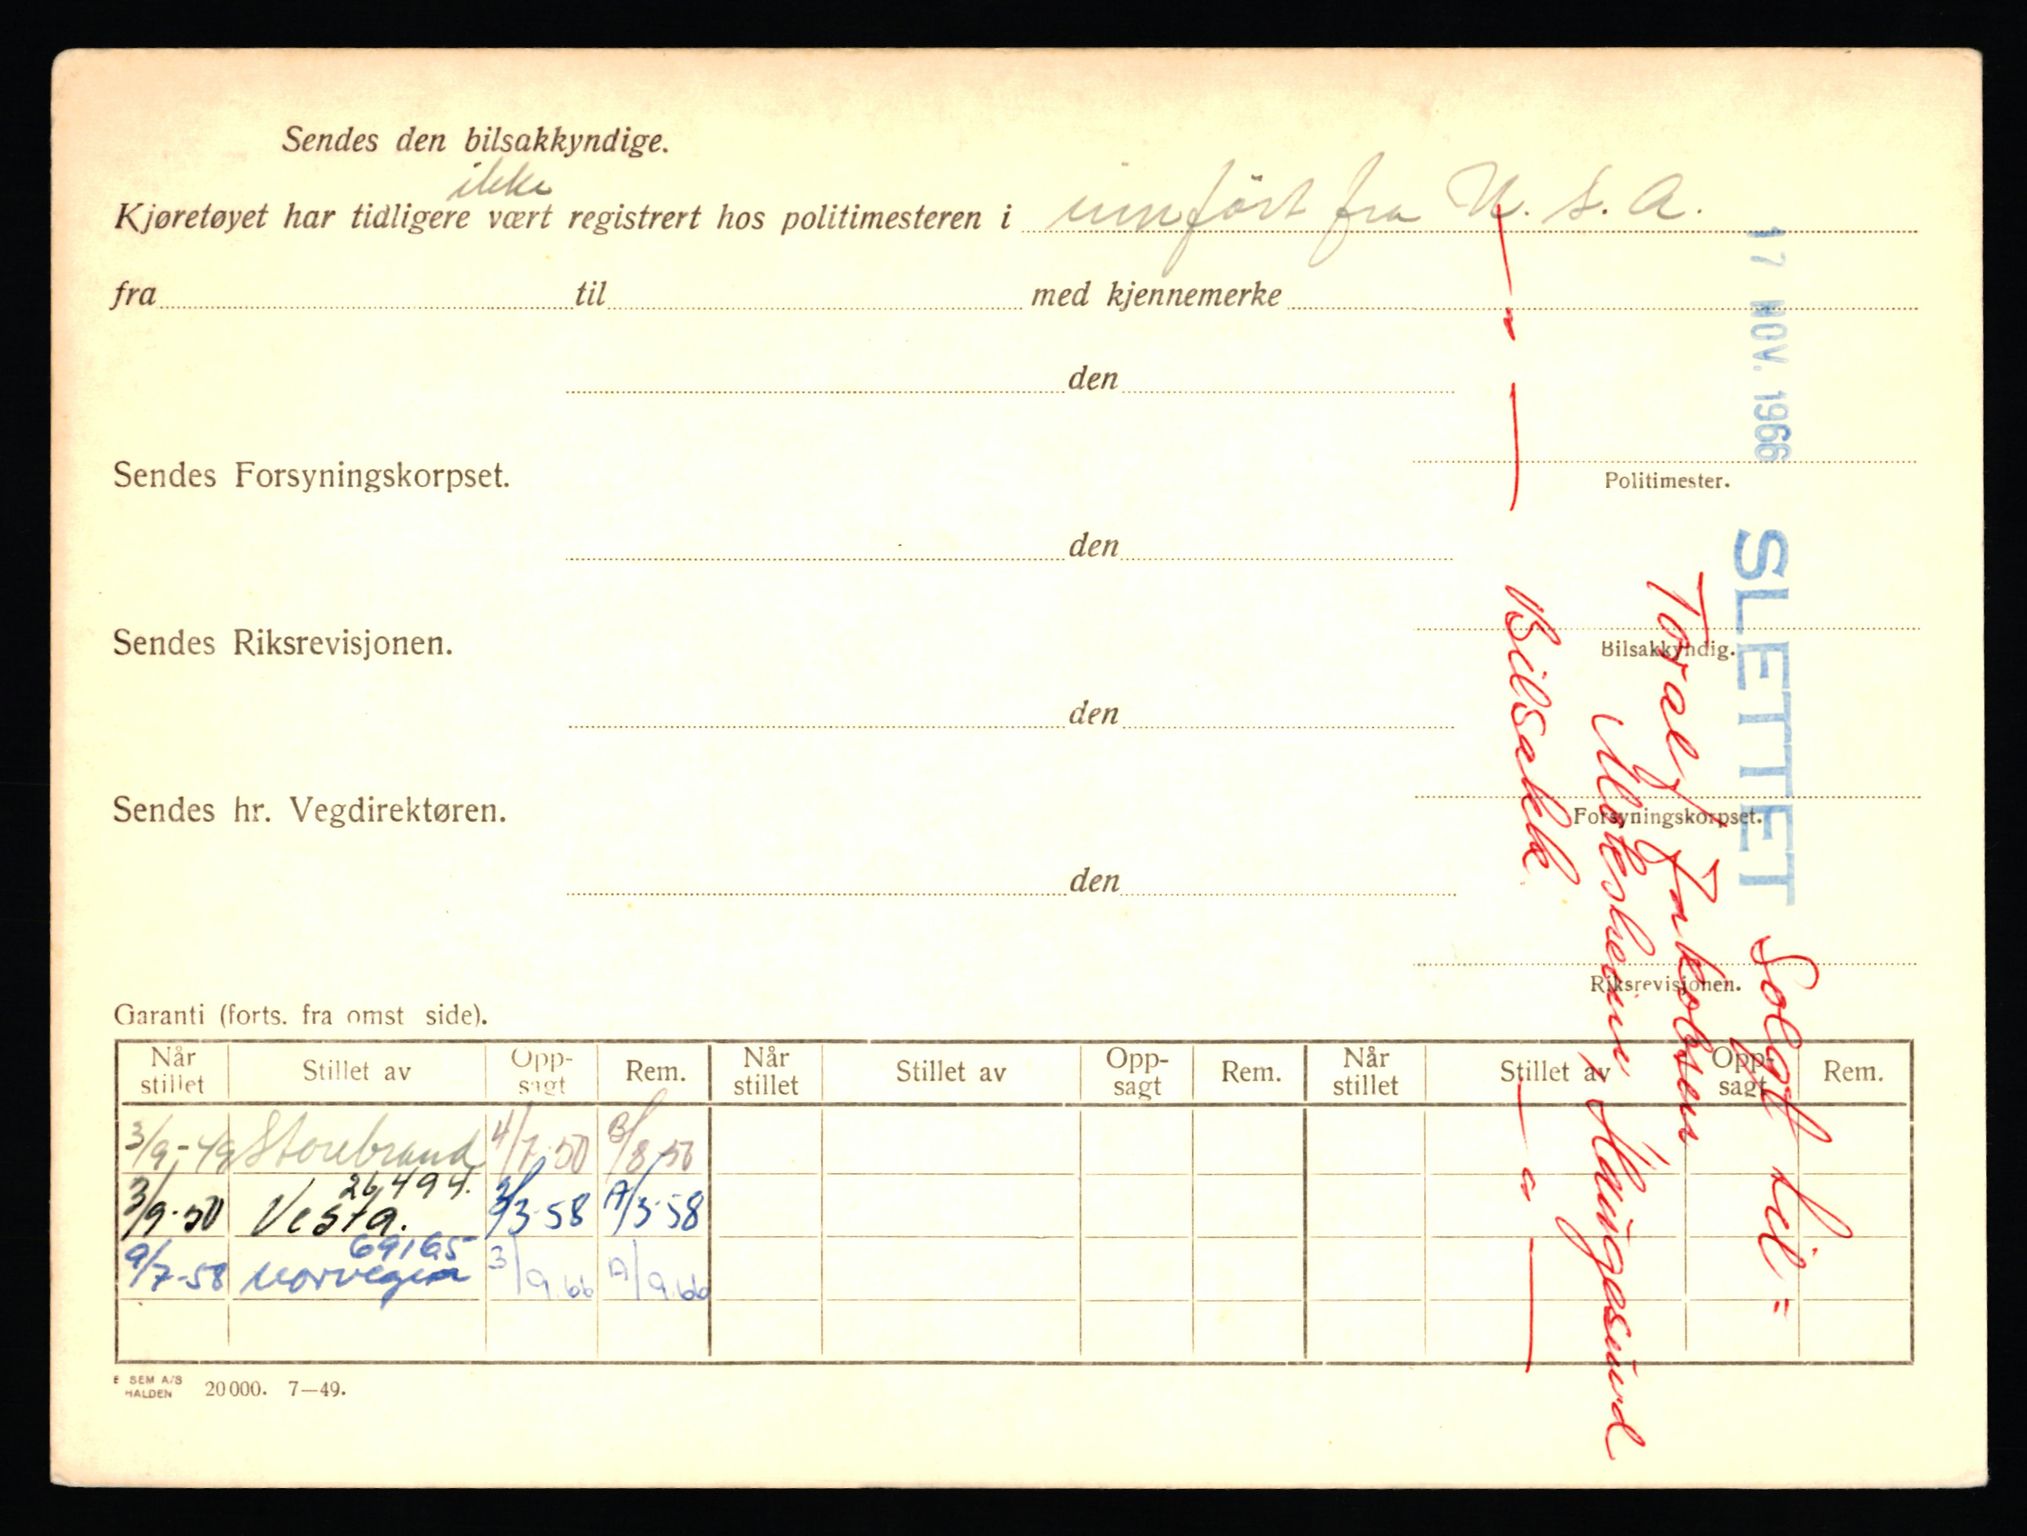 Sendes den bilsakkyndige.
ikke
Kjøretøyet har tidligere vært registrert hos politimesteren i innført fra U. S. A.
fra til med kjennemerke
den
Sendes Forsyningskorpset.
Politimester.
den
Sendes Riksrevisjonen.
Bilsakkyndig.
den
Sendes hr. Vegdirektøren.
Forsyningskorpset.
den
Riksrevisjonen.
Garanti (forts. fra omst side).
Når stillet Stillet av Opp-sagt Rem. Når stillet Stillet av Opp-sagt Rem. Når stillet Stillet av Opp-sagt Rem.
3/9-49 Storebrand 4/7-50 B/8 50
26494.
3/9-50 Vesta. 3/3-58 A/3-58
69165
9/7-58 Norvegia 3/9.66 A/9.66
E SEM A/S
HALDEN 20000. 7—49.
17 NOV. 1966 SLETTET Solgt til =
Toralf Jakobsen
Haugesund
— " — Bilsakk. — " —